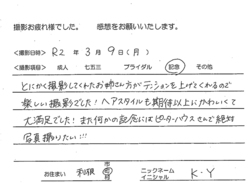 撮影お疲れ様でした。 感想をお願いいたします。
<撮影日時> R2年 3月 9日(月)
<撮影項目> 成人 七五三 ブライダル 記念 その他
とにかく撮影してくれたお姉さん方がテンションを上げてくれるので
楽しい撮影でした!ヘアスタイルも期待以上にかわいくて
大満足でした!また何かの記念にはピーターハウスさんで絶対
写真撮りたい!!!
お住まい 利根 市 町 村 ニックネーム イニシャル K・Y